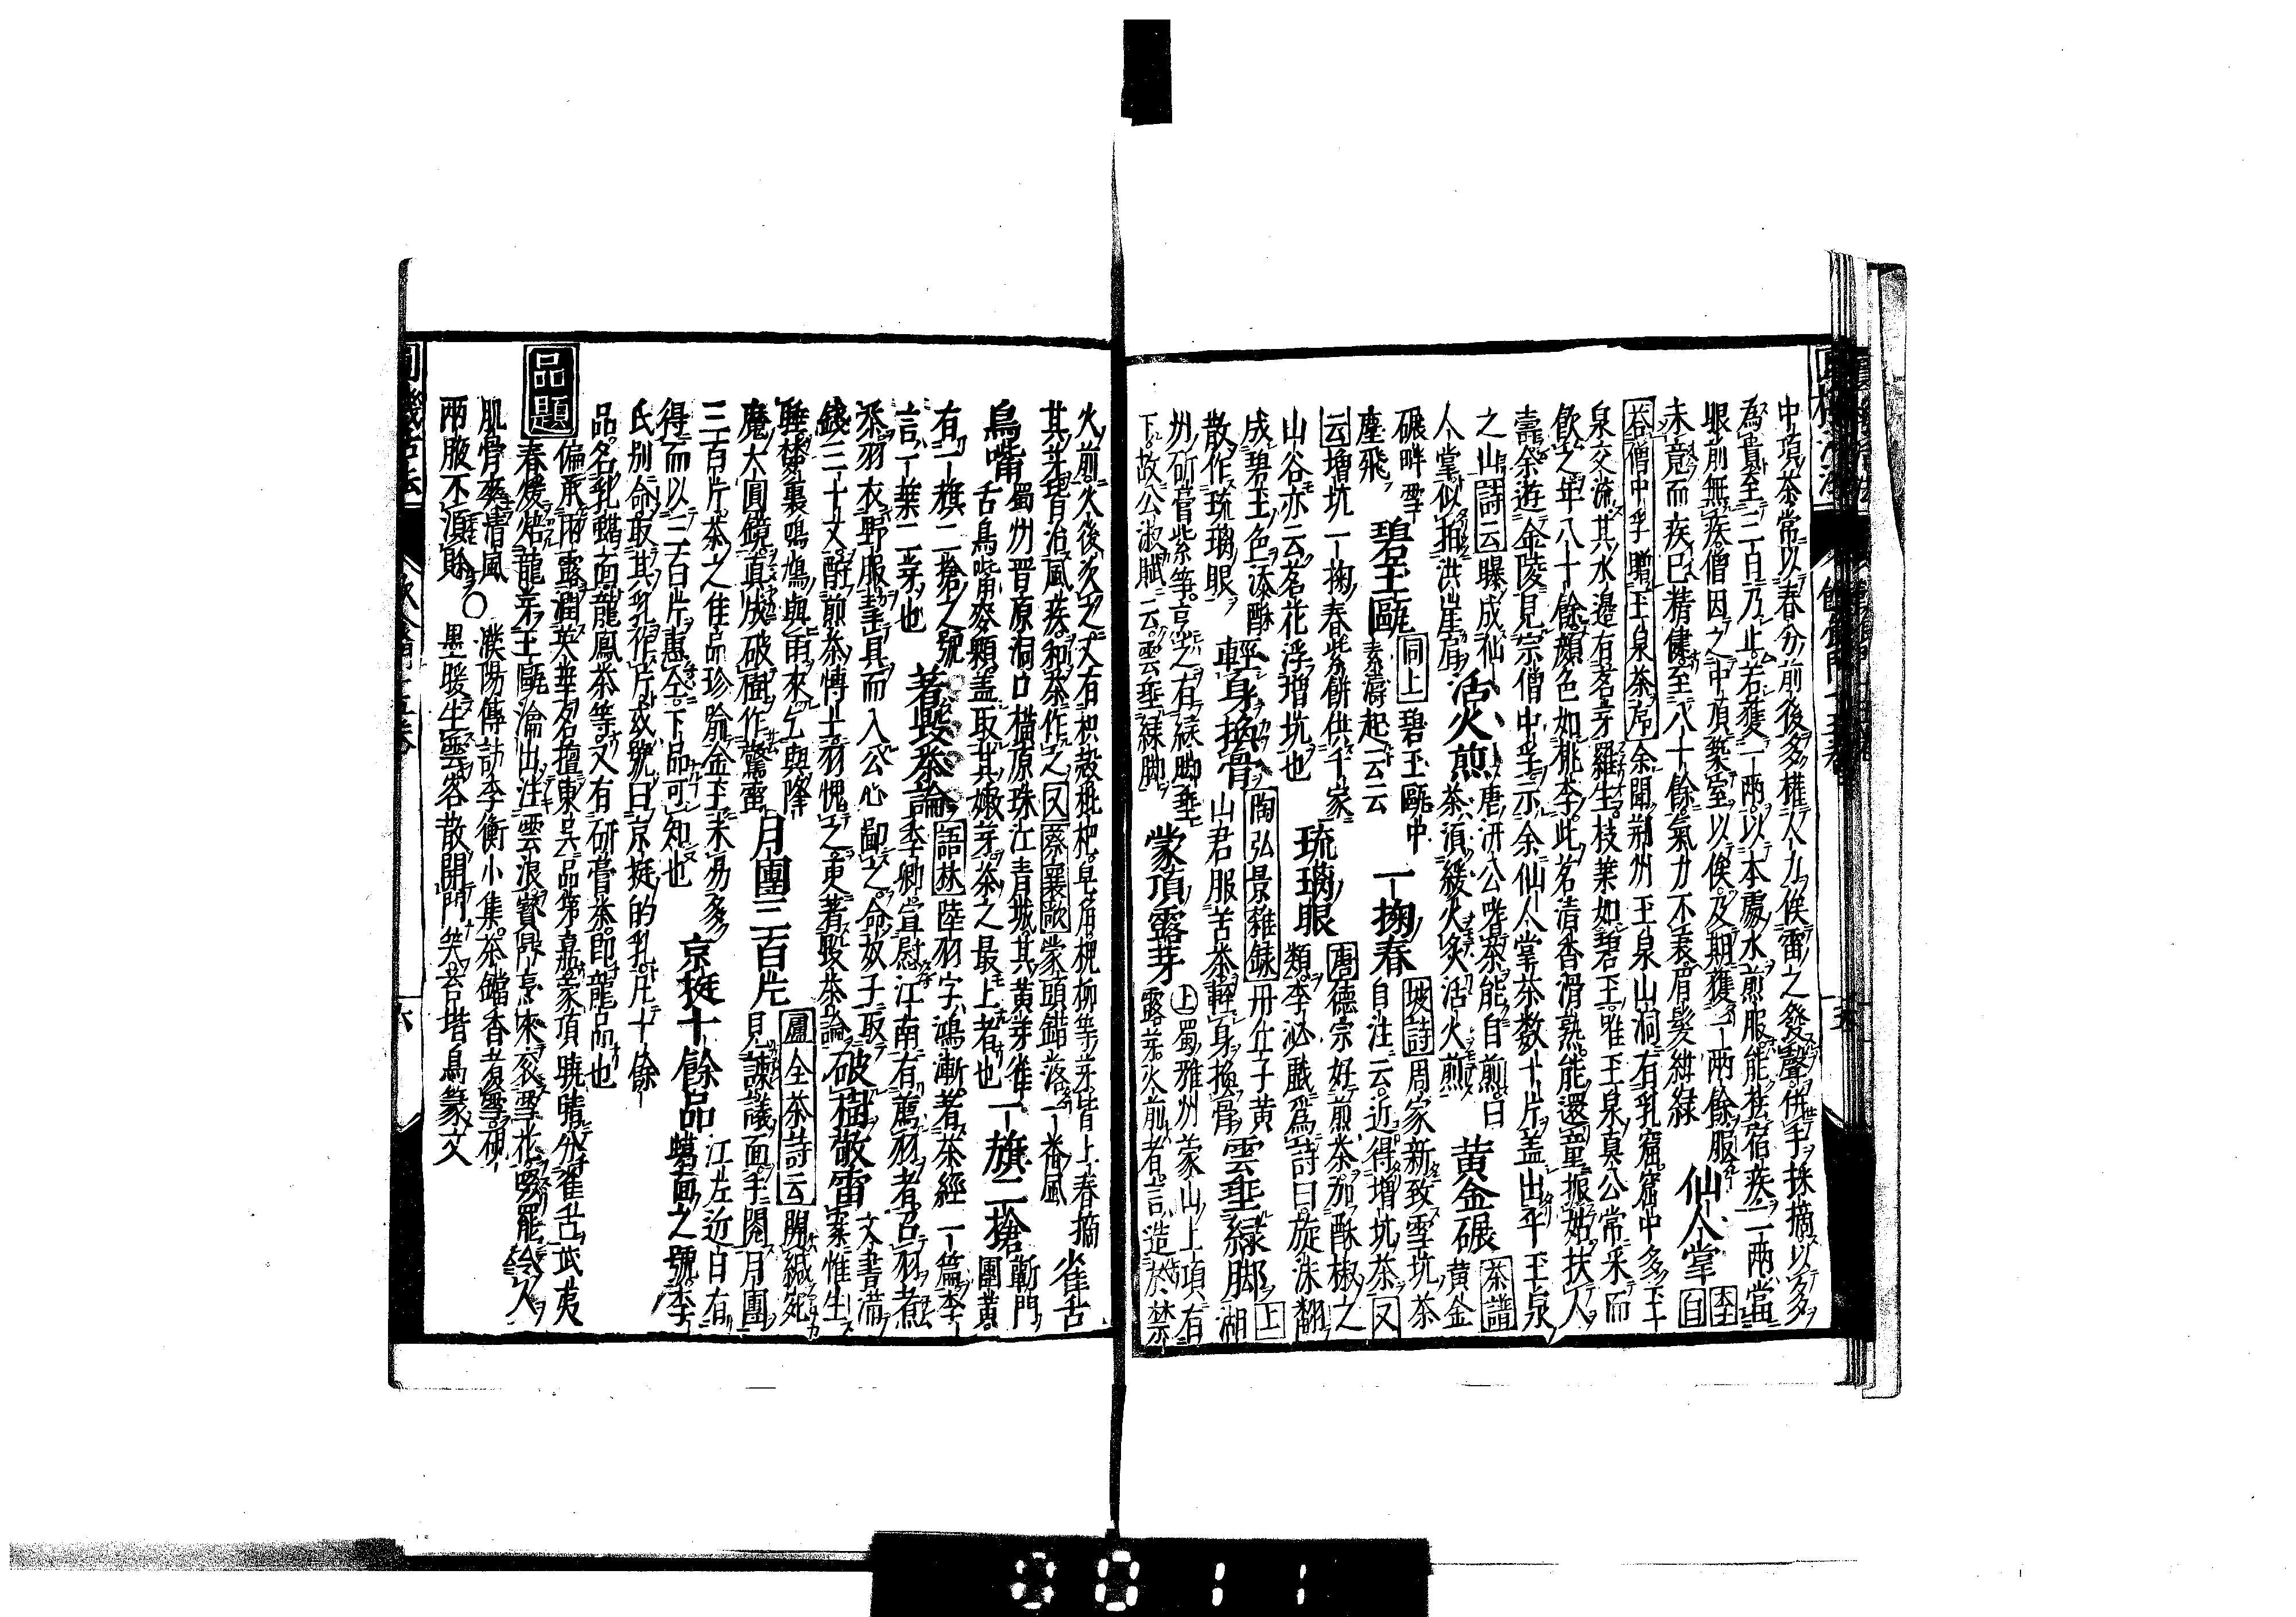 中頂茶常以春分前後多權人力候雷之發聲併手採摘以多
為貴至三日乃止若獲一兩以本處水煎服能袪宿疾二兩當
眼前無疾僧因之中頂築室以俟及期獲一兩餘服
未竟而疾已精健至八十餘氣力不衰眉髮紺綠 仙人掌 李白
荅僧中孚贈玉泉茶序余聞荊州玉泉山洞有乳窟窟中多玉
泉交流其水邊有茗芽羅生枝葉如碧玉唯玉泉真公常采而
飲之年八十餘顏色如桃李此茗清香滑熟能還童振姑扶人
壽余遊金陵見宗僧中孚示余仙人掌茶数十片盖出乎玉泉
之山詩云曝成仙
人掌似拍洪崖肩 活火煎 唐汧公嗜茶能自煎曰
茶湏緩火炙活火煎 黃金碾 茶譜 黃金
碾畔雪
塵飛 碧玉甌 同上 碧玉甌中
素濤起云云 一掬春 坡詩 周家新致雪坑茶
自注云近得增坑茶 又
云増坑一掬春紫餅供千家
山谷亦云茗花浮增坑也 琉璃眼 唐德宗好煎茶加酥椒之
類李泌戱爲詩曰旋沫翻
成碧玉色添酥
散作琉璃眼 輕身換骨 陶弘景雜錄 丹丘子黃
山君服苦茶輕身換骨 雲垂綠脚 上 湖
州斫膏紫笋烹之有綠脚垂
下故公淑賦云雲垂綠脚 蒙頂露芽 上 蜀雅州蒙山上頂有
露芽火前者言造於禁
火前火後次之又有枳殼枇杷皂角槐柳等芽皆上春摘
其芽皆治風疾和茶作之 又蔡襄歌 蒙頭錯落一番風 雀舌
鳥嘴 蜀州晋原洞口橫原珠江青城其黃芽雀
舌鳥嘴麥顆盖取其嫩芽茶之最上者也 一旗二槍 蘄門
團黃
有一旗二槍之號
言一葉二芽也 著毀茶論 語林 陸羽字鴻漸著茶經一篇李
季卿宣慰江南有薦羽者召羽煮
茶羽衣野服挈具而入公心鄙之命奴子取
錢三十文酧煎茶博士羽愧之更著毀茶論 破樹敬雷 文書滿
案惟生
睡夢裏鳴鳩與雨來乞與降
魔大圓鏡真成破樹作驚雷 月團三百片 盧仝茶詩云 開緘宛
見諫議面手閱月團
三百片茶之佳品珍踰金玉未易多
得而以三百片惠仝下品可知也 京挺十餘品 江左近日有
蠟面之號李
氏別命取其乳作片或號曰京挺的乳片十餘
品名乳蠟面龍鳳茶等又有研膏茶即龍品也
品題 偏承雨露潤英華名擅東吳品第嘉家頂曉晴分雀舌武夷
春煖焙龍芽玉甌淪出注雲浪寶鼎烹來衮雪花啜罷令人
肌骨爽清風
兩腋不湏賖○ 濮陽傳訪李衡小集茶鐺香煮雪硯
墨暖生雲客散開門笑苔堦鳥篆文